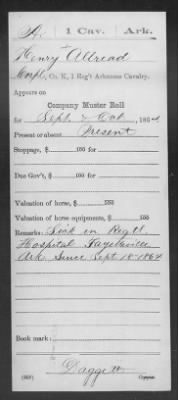 A | 1 Cav. | Ark.
Henry Allread
Corpl, Co. K, 1 Reg't Arkansas Cavalry.
Appears on
Company Muster Roll
for Sept & Oct, 1864
Present or absent Present
Stoppage, $ 100 for
Due Gov't, $ 100 for
Valuation of horse, $ 100
Valuation of horse equipments, $ 100
Remarks: Sick in Regtl
Hospital Fayetteville
Ark Since Sept 18 1864
Book mark:
Daggett
(358) Copyist.